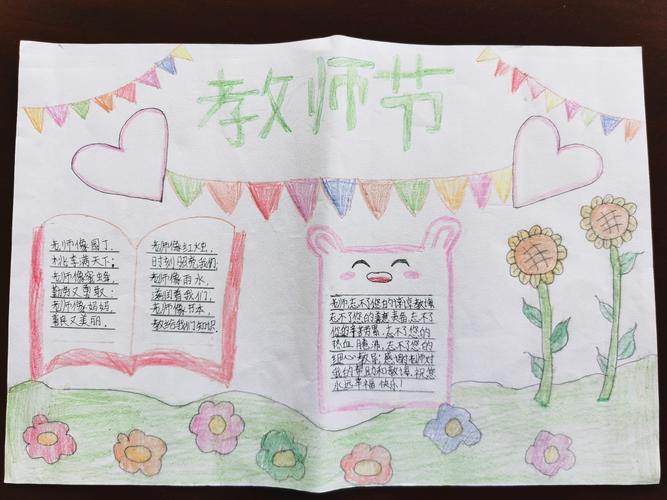 教师节
老师像园丁,
桃李满天下;
老师像蜜蜂,
勤劳又勇敢;
老师像妈妈,
善良又美丽.
老师像红烛,
时刻照亮我们,
老师像雨水,
滋润着我们,
老师像书本,
教给我们知识.
老师忘不了您的谆谆教诲
忘不了您的满意笑容.忘不了
你的辛苦劳累.忘不了您的
热血腾沸.忘不了您的
细心教导;感谢老师对
我的帮助和教诲.祝您
永远幸福快乐!